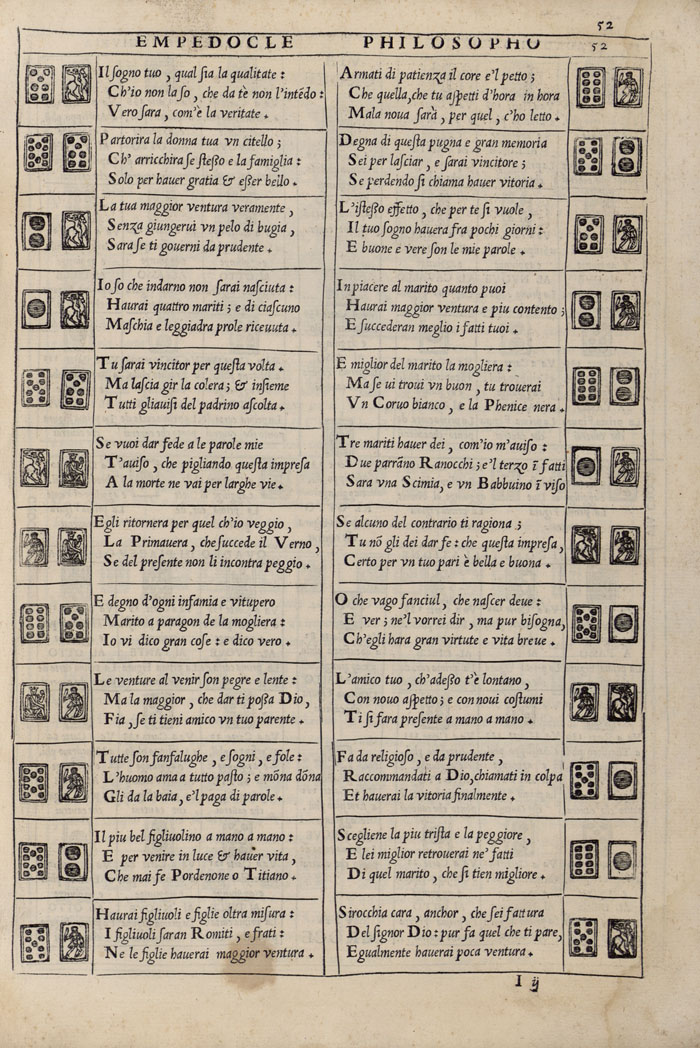 52
EMPEDOCLE PHILOSOPHO 52
Il sogno tuo, qual sia la qualitate:
Ch'io non la so, che da tè non l'intēdo:
Vero sara, com'è la veritate.
Partorira la donna tua vn citello;
Ch' arricchira se steßo e la famiglia:
Solo per hauer gratia & eßer bello.
La tua maggior ventura veramente,
Senza giungerui vn pelo di bugia,
Sara se ti gouerni da prudente.
Io so che indarno non sarai nasciuta:
Haurai quattro mariti; e di ciascuno
Maschia e leggiadra prole riceuuta.
Tu sarai vincitor per questa volta.
Ma lascia gir la colera; & insieme
Tutti gliauisi del padrino ascolta.
Se vuoi dar fede a le parole mie
T'auiso, che pigliando questa impresa
A la morte ne vai per larghe vie.
Egli ritornera per quel ch'io veggio,
La Primauera, che succede il Verno,
Se del presente non li incontra peggio.
E degno d'ogni infamia e vitupero
Marito a paragon de la mogliera:
Io vi dico gran cose: e dico vero.
Le venture al venir son pegre e lente:
Ma la maggior, che dar ti poßa Dio,
Fia, se ti tieni amico vn tuo parente.
Tutte son fanfalughe, e sogni, e fole:
L'huomo ama a tutto pasto; e mōna dōna
Gli da la baia, e'l paga di parole.
Il piu bel figliuolino a mano a mano:
E per venire in luce & hauer vita,
Che mai fe Pordenone o Titiano.
Haurai figliuoli e figlie oltra misura:
I figliuoli saran Romiti, e frati:
Ne le figlie hauerai maggior ventura.
Armati di patienza il core e'l petto;
Che quella, che tu aspetti d'hora in hora
Mala noua sarà, per quel, c'ho letto.
Degna di questa pugna e gran memoria
Sei per lasciar, e sarai vincitore;
Se perdendo si chiama hauer vitoria.
L'isteßo effetto, che per te si vuole,
Il tuo sogno hauera fra pochi giorni:
E buone e vere son le mie parole.
In piacere al marito quanto puoi
Haurai maggior ventura e piu contento;
E succederan meglio i fatti tuoi.
E miglior del marito la mogliera:
Ma se ui troui vn buon, tu trouerai
Vn Coruo bianco, e la Phenice nera.
Tre mariti hauer dei, com'io m'auiso:
Due parrāno Ranocchi; e'l terzo ī fatti
Sara vna Scimia, e vn Babbuino ī viso
Se alcuno del contrario ti ragiona;
Tu nō gli dei dar fe: che questa impresa,
Certo per vn tuo pari è bella e buona.
O che vago fanciul, che nascer deue:
E ver; ne'l vorrei dir, ma pur bisogna,
Ch'egli hara gran virtute e vita breue.
L'amico tuo, ch'adeßo t'è lontano,
Con nouo aspetto; e con noui costumi
Ti si fara presente a mano a mano.
Fa da religioso, e da prudente,
Raccommandati a Dio, chiamati in colpa
Et hauerai la vitoria finalmente.
Scegliene la piu trista e la peggiore,
E lei miglior retrouerai ne' fatti
Di quel marito, che si tien migliore.
Sirocchia cara, anchor, che sei fattura
Del signor Dio: pur fa quel che ti pare,
Egualmente hauerai poca ventura.
I ij